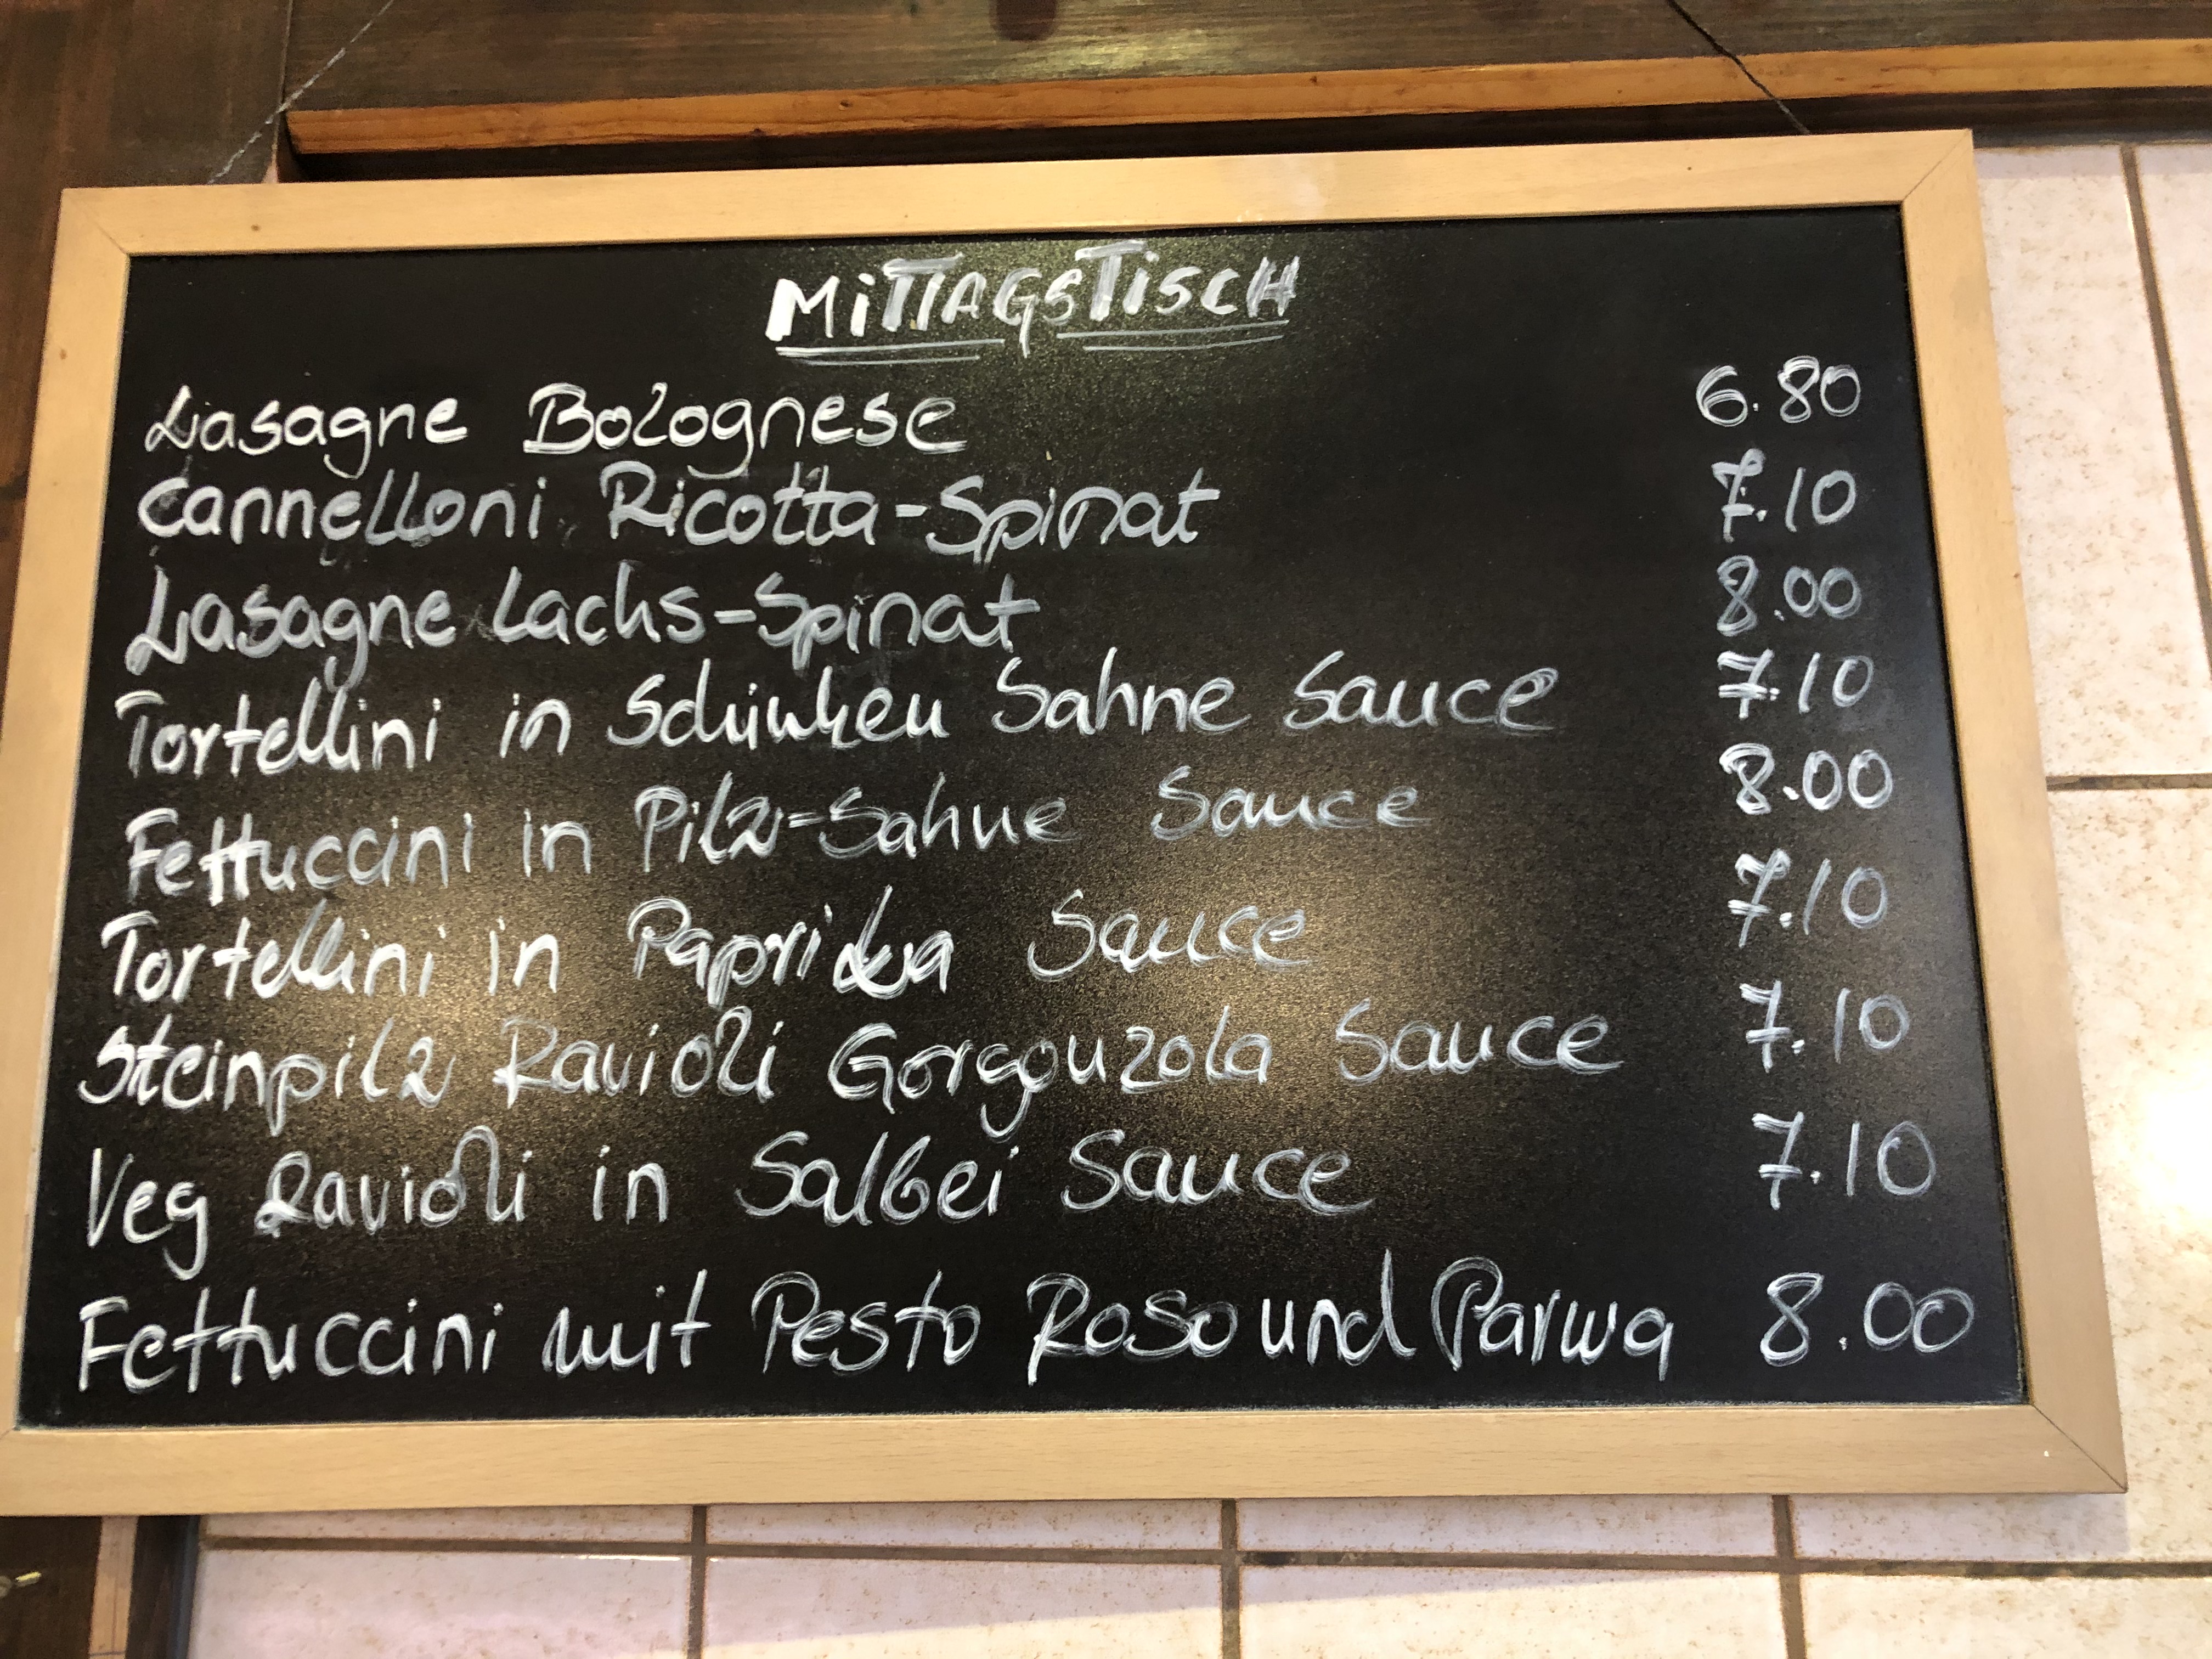 MiTTAGSTiSCH
Lasagne Bolognese 6.80
Cannelloni Ricotta-Spinat 7.10
Lasagne Lachs-Spinat 8.00
Tortellini in Schinken Sahne Sauce 7.10
Fettuccini in Pilz-Sahne Sauce 8.00
Tortellini in Paprika Sauce 7.10
Steinpilz Ravioli Gorgonzola Sauce 7.10
Veg Ravioli in Salbei Sauce 7.10
Fettuccini mit Pesto Roso und Parma 8.00